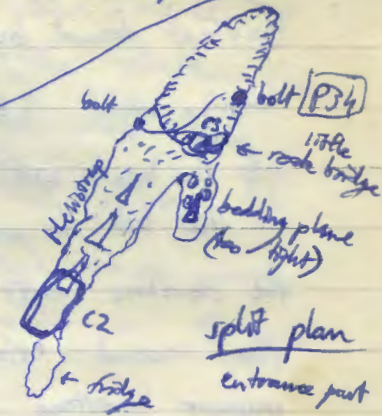 bolt
bolt P34
little
← rock bridge
bedding plane
(too tight)
C2
split plan
entrance part
← fridge